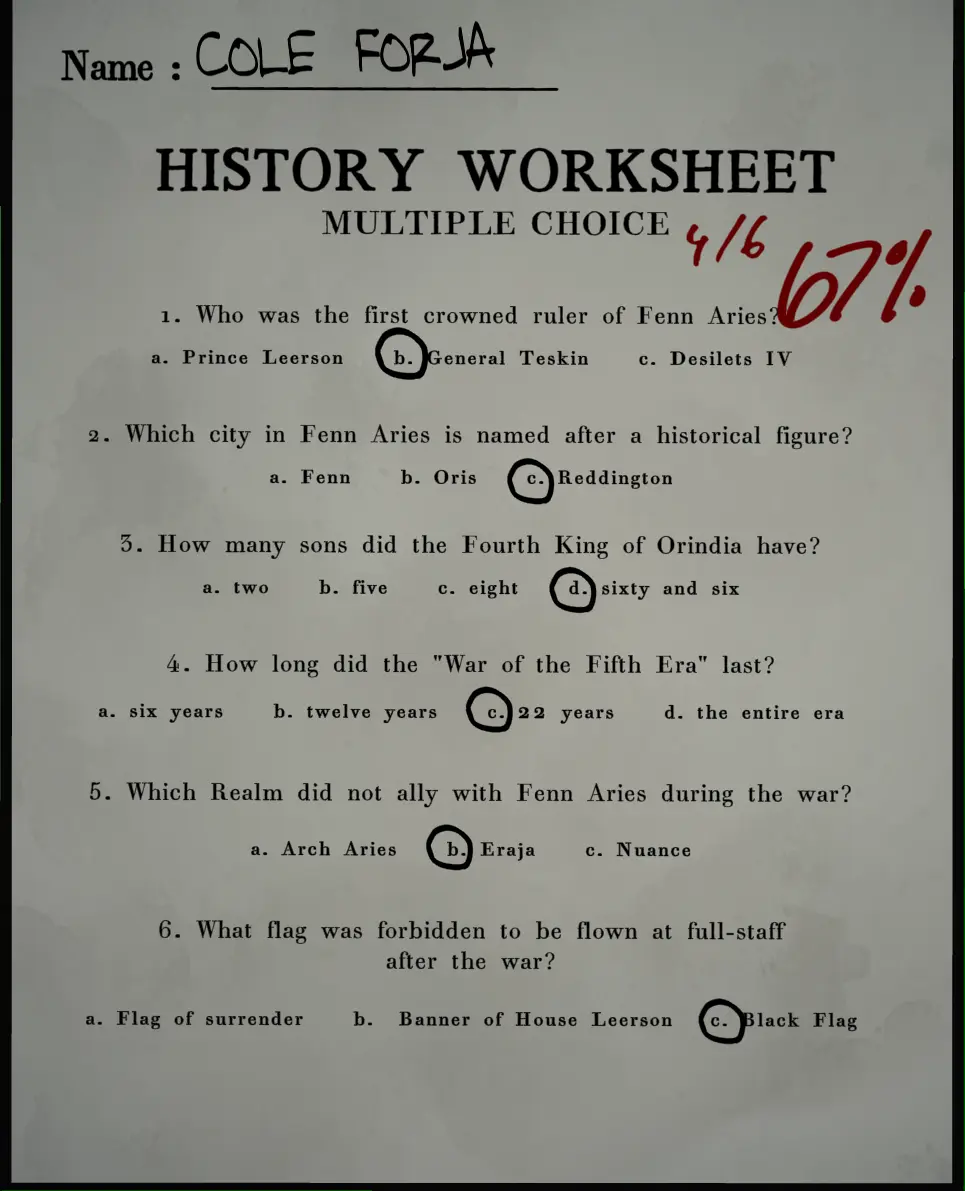 Name : COLE FORJA
HISTORY WORKSHEET
MULTIPLE CHOICE 4/6 67%
1. Who was the first crowned ruler of Fenn Aries?
a. Prince Leerson b. General Teskin c. Desilets IV
2. Which city in Fenn Aries is named after a historical figure?
a. Fenn b. Oris c. Reddington
3. How many sons did the Fourth King of Orindia have?
a. two b. five c. eight d. sixty and six
4. How long did the "War of the Fifth Era" last?
a. six years b. twelve years c. 22 years d. the entire era
5. Which Realm did not ally with Fenn Aries during the war?
a. Arch Aries b. Eraja c. Nuance
6. What flag was forbidden to be flown at full-staff
after the war?
a. Flag of surrender b. Banner of House Leerson c. Black Flag